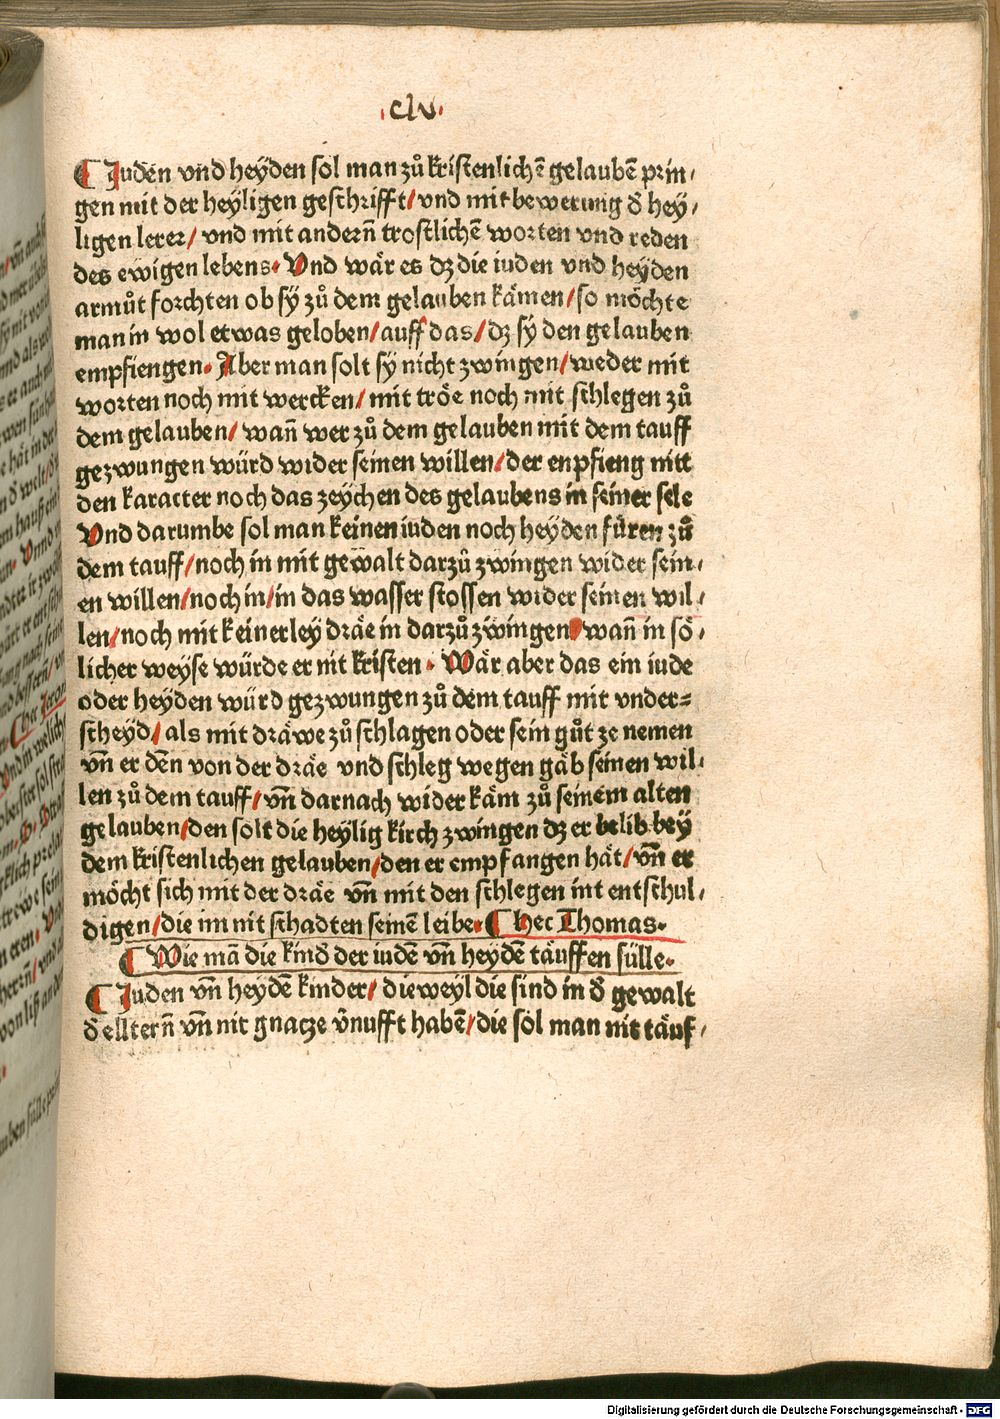 ·clv·
¶ Juden vnd heyden sol man zů kristenlichē gelaubē prin⸗
gen mit der heyligen geschrifft/ vnd mit bewerung d̄ hey⸗
ligen lerer/ vnd mit andern̄ trostlichē worten vnd reden
des ewigen lebens· Vnd wår es dz die iuden vnd heyden
armůt forchten ob sy zů dem gelauben kåmen/ so möchte
man in wol etwas geloben/ auff das/ dz sy den gelauben
empfiengen· Aber man solt sy nicht zwingen/ weder mit
worten noch mit wercken/ mit tröe noch mit schlegen zů
dem gelauben/ wañ wer zů dem gelauben mit dem tauff
gezwungen würd wider seinen willen/ der enpfieng nitt
den karacter noch das zeychen des gelaubens in seiner sele
Vnd darumbe sol man keinen iuden noch heyden fůren zů
dem tauff/ noch in mit gewalt darzů zwingen wider sein⸗
en willen/ noch in/ in das wasser stossen wider seinen wil⸗
len/ noch mit keinerley dräe in darzů zwingen/ wañ in sö⸗
licher weyse würde er nit kristen· Wår aber das ein iude
oder heyden würd gezwungen zů dem tauff mit vnder⸗
scheyd/ als mit dräwe zů schlagen oder sein gůt ze nemen
vn̄ er dēn von der dräe vnd schleg wegen gäb seinen wil⸗
len zů dem tauff/ vn̄ darnach wider käm zů seinem alten
gelauben/ den solt die heylig kirch zwingen dz er belib bey
dem kristenlichen gelauben/ den er empfangen hät/ vn̄ er
möcht sich mit der dräe vn̄ mit den schlegen int entschul⸗
digen/ die im nit schadten seinē leibe· ¶ hec Thomas·
¶ Wie mā die kind der iudē vn̄ heydē täuffen sülle·
¶ Juden vn̄ heydē kinder/ dieweyl die sind in d̄ gewalt
d̄ elltern̄ vn̄ nit gnacze v̄nufft habē/ die sol man nit täuf⸗
Digitalisierung gefördert durch die Deutsche Forschungsgemeinschaft - DFG